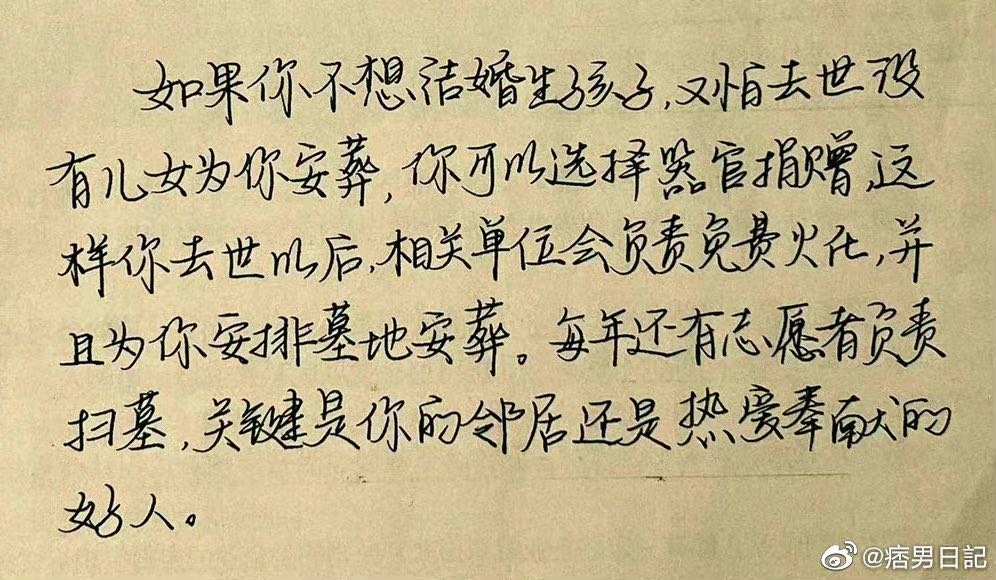 如果你不想结婚生孩子,又怕去世没
有儿女为你安葬,你可以选择器官捐赠,这
样你去世以后,相关单位会负责免费火化,并
且为你安排墓地安葬。每年还有志愿者负责
扫墓,关键是你的邻居还是热爱奉献的
好人。
@痞男日記